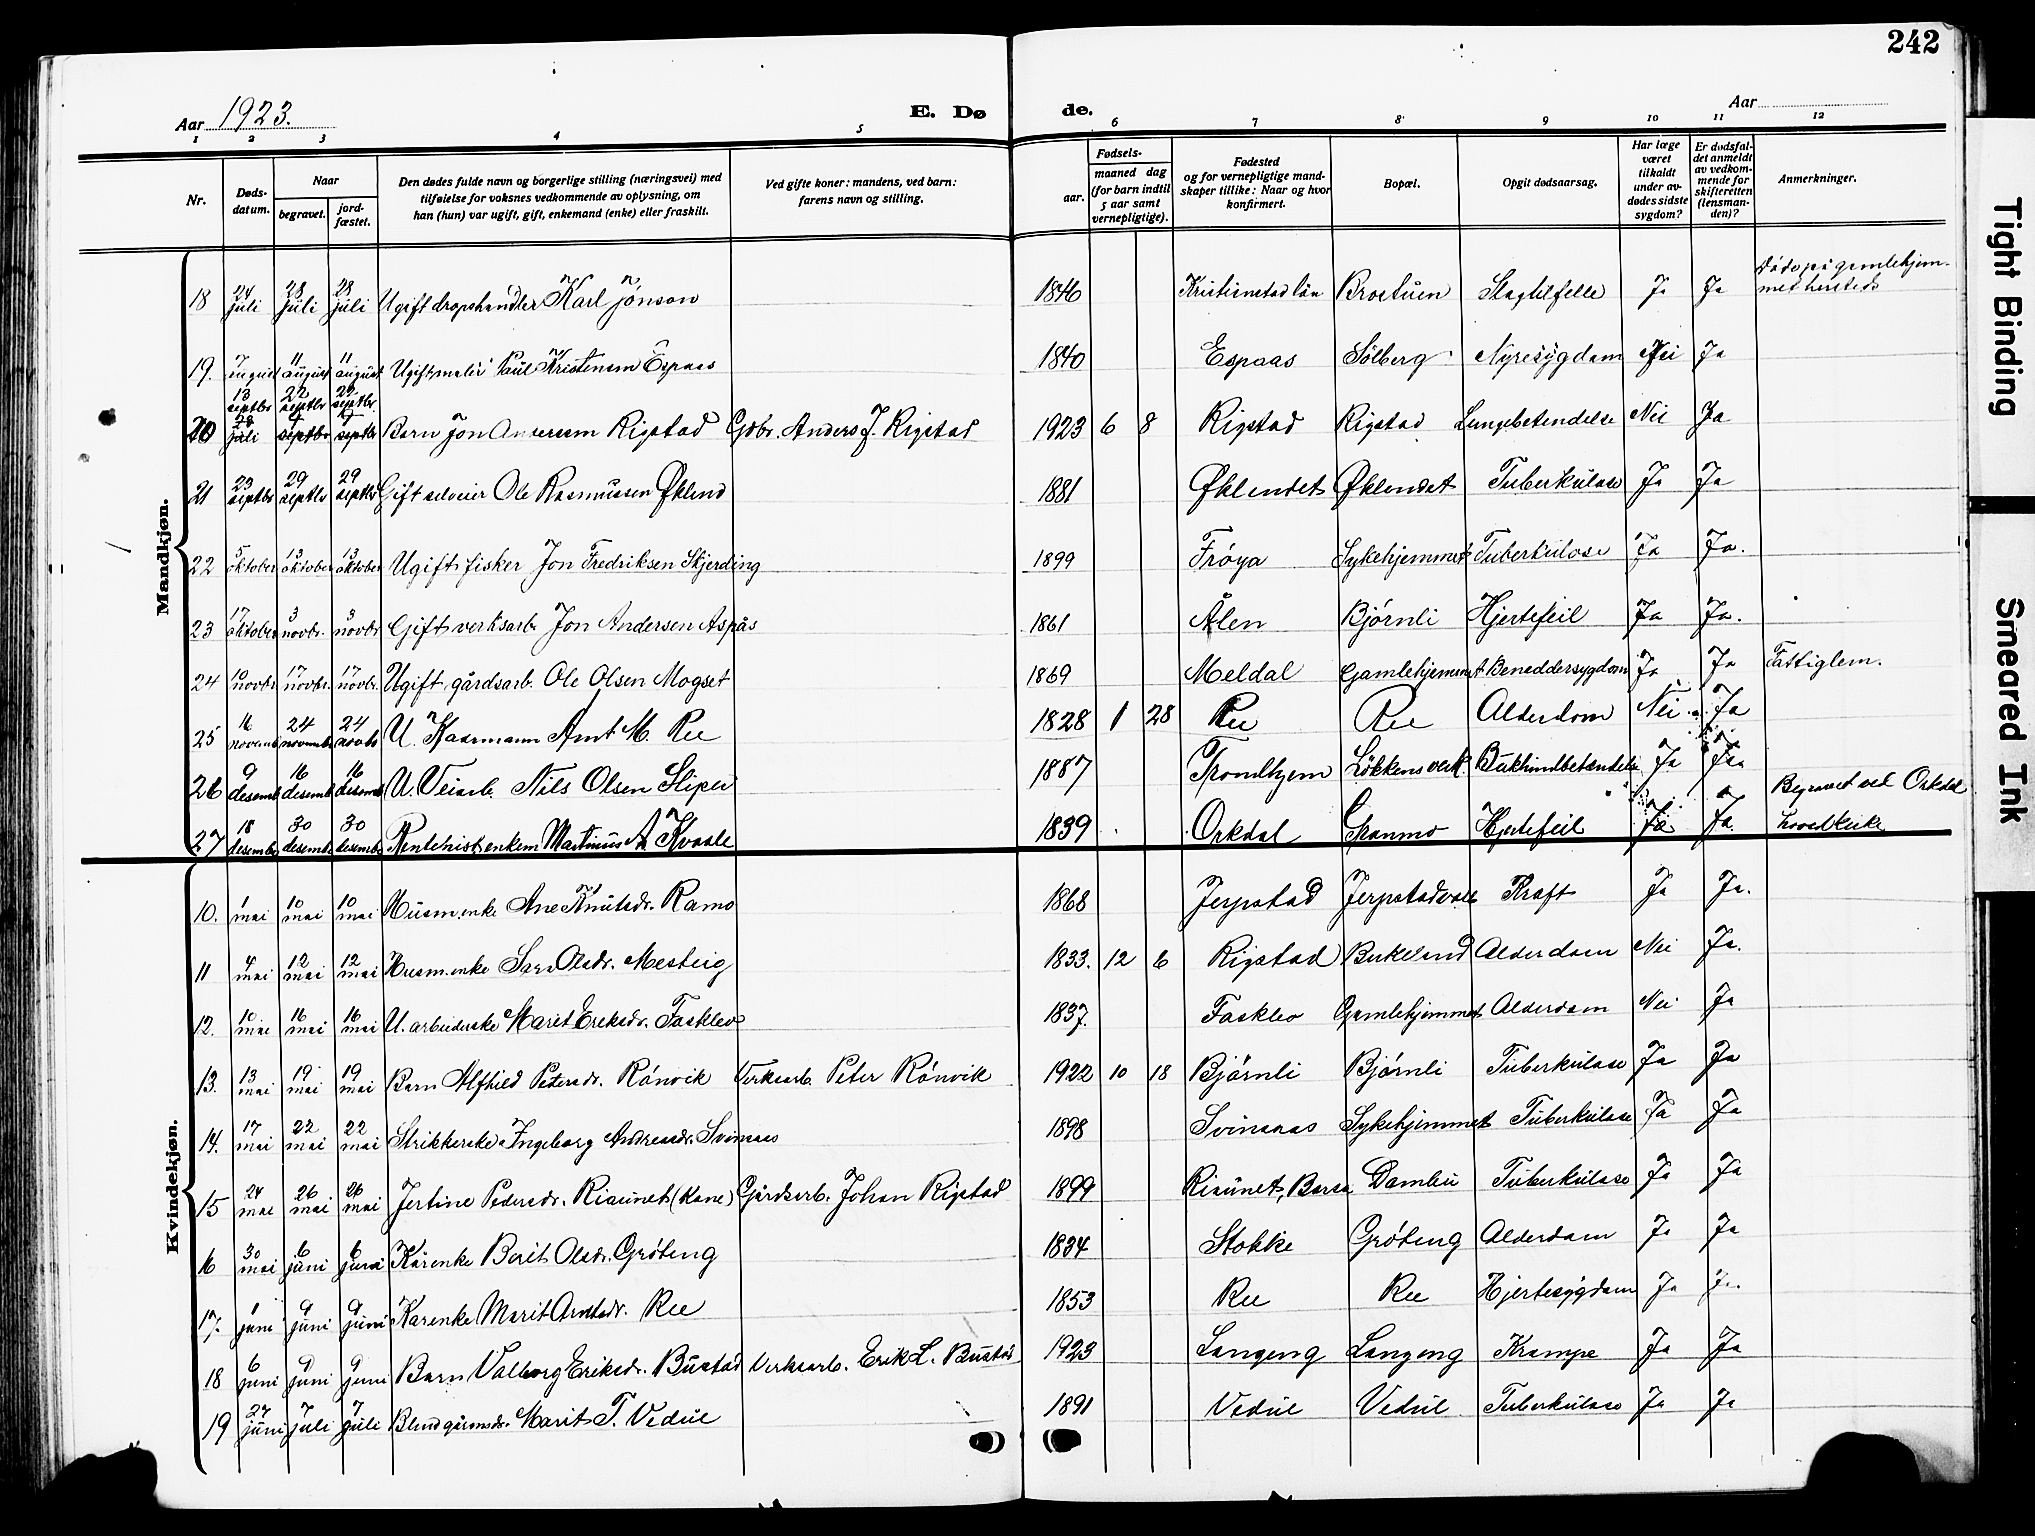 242
Aar 1923.
E. Dø
de.
Aar
1 2 3 4 5 6 7 8 9 10 11 12
Nr.
Døds-
datum.
Naar
begravet.
jord-
fæstet.
Den dødes fulde navn og borgerlige stilling (næringsvei) med
tilføielse for voksnes vedkommende av oplysning, om
han (hun) var ugift, gift, enkemand (enke) eller fraskilt.
Ved gifte koner: mandens, ved barn:
farens navn og stilling.
Fødsels-
aar.
maaned dag
(for barn indtil
5 aar samt
vernepligtige).
Fødested
og for vernepligtige mand-
skaper tillike: Naar og hvor
konfirmert.
Bopæl.
Opgit dødsaarsag.
Har læge
været
tilkaldt
under av-
dødes sidste
sygdom?
Er dødsfal-
det anmeldt
av vedkom-
mende for
skifteretten
(lensman-
den)?
Anmerkninger.
Mandkjøn.
18 24 juli 28 juli 28 juli Ugift dropshandler Karl Jönson 1846 Kristianstad län Brostuen Slagtilfelle Ja Ja Död på gamlehjem-
met hersteds
19. 7 august 11 august 11 august Ugift maler Paul Kristensen Espaas 1840 Espaas Solberg Nyresygdam Nei Ja
13 septbr 22 septbr 22 septbr
20 28 juli 9 septbr 9 septbr Barn Jon Andersen Rigstad Gdbr. Anders J. Rigstad 1923 6 8 Rigstad Rigstad Lungebetendelse Nei Ja
21 23 septbr 29 septbr 29 septbr Gift selveier Ole Rasmussen Øklend 1881 Øklendet Øklendet Tuberkulose Ja Ja
22 5 oktober 13 oktober 13 oktober Ugift fisker Jon Fredriksen Skjerding 1899 Fröya Sykehjemmet Tuberkulose Ja Ja.
23 17 oktober 3 novbr. 3 novbr Gift verksarb. Jon Andersen Aspås 1861 Ålen Björnli Hjertefeil Ja Ja.
24 10 novbr. 17 novbr. 17 novbr. Ugift gårdsarb. Ole Olsen Mogset 1869 Meldal Gamlehjemmet Beneddersygdom Ja Ja Fattiglem.
25 16 novemb. 24 novembr 24 novbr U. Kaarmann Arnt M. Ree 1828 1 28 Ree Ree Alderdom Nei Ja
26 9 desemb. 16 desemb 16 desemb U. Veiarb. Nils Olsen Sliper 1887 Trondhjem Lökkens verk Bukhindbetændelse Ja Ja
27 18 desembr 30 desemb 30 desembr Rentenist enkem Martinus A Kvaale 1839 Orkdal Granmo Hjertefeil Ja Ja. Begravet ved Orkdal
hovedkirke
Kvindekjøn.
10. 1 mai 10 mai 10 mai Husm.enke Ane Knutsdr. Ramo 1868 Jerpstad Jerpstad Kræft Ja Ja.
11 4 mai 12 mai 12 mai Husm.enke Sara Olsdr. Mesteig 1833. 12 6 Rigstad Birkeland Alderdom Nei Ja.
12. 10 mai 16 mai 16 mai U. arbeiderske Marit Eriksdr. Faskleo 1837. Faskleo Gamlehjemmet Alderdom Nei Ja
13. 13 mai 19 mai 19 mai Barn Alfhild Petersdr. Rönvik Verksarb. Peter Rönvik 1922 10 18 Björnli Björnli Tuberkulose Ja Ja
14. 17 mai 22 mai 22 mai Strikkerske Ingeborg Andreasdr. Svinaas 1898 Svinaas Sykehjemmet Tuberkulose Ja Ja
15 24 mai 26 mai 26 mai Jertine Pedersdr. Risunet (Kone) Gårdsarb. Johan Rigstad 1899 Risunet, Börsa Dambu Tuberkulose Ja Ja
16 30 mai 6 juni 6 juni Kårenke Berit Olsdr. Gröteng 1834 Stokke Gröteng Alderdom Ja Ja
17. 1 juni 9 juni 9 juni Karenke Marit Arntsdr. Ree 1853 Ree Ree Hjertesygdom Ja Ja
18 6 juni 9 juni 9 juni Barn Valborg Eriksdr. Bustad Verksarb. Erik L. Bustad 1923 Langeng Langeng Krampe Ja Ja
19 27 juni 7 juli 7 juli Marit T. Vedul 1891 Vedul Vedul Tuberkulose Ja Ja
Tight Binding
Smeared Ink